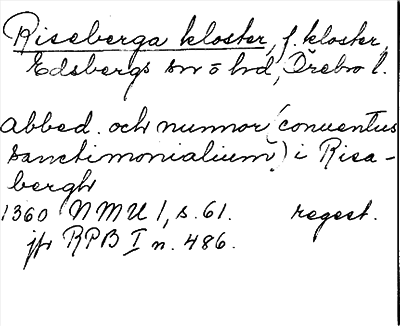 Riseberga kloster, f. kloster,
Edsbergs sn o hd, Örebro l.
Abbed. och nunnor (conuentus
sanctimonialium) i Risa-
bergh
1360 NMU 1, s. 61. regest.
jfr RPB I n. 486.